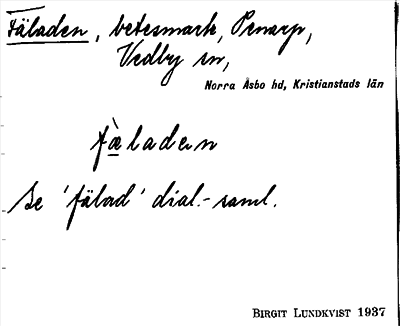 Fäladen, betesmark, Penarp,
Vedby sn,
Norra Åsbo hd, Kristianstads län
fæ̀ladεn
Se 'fälad' dial.-saml.
BIRGIT LUNDKVIST 1937